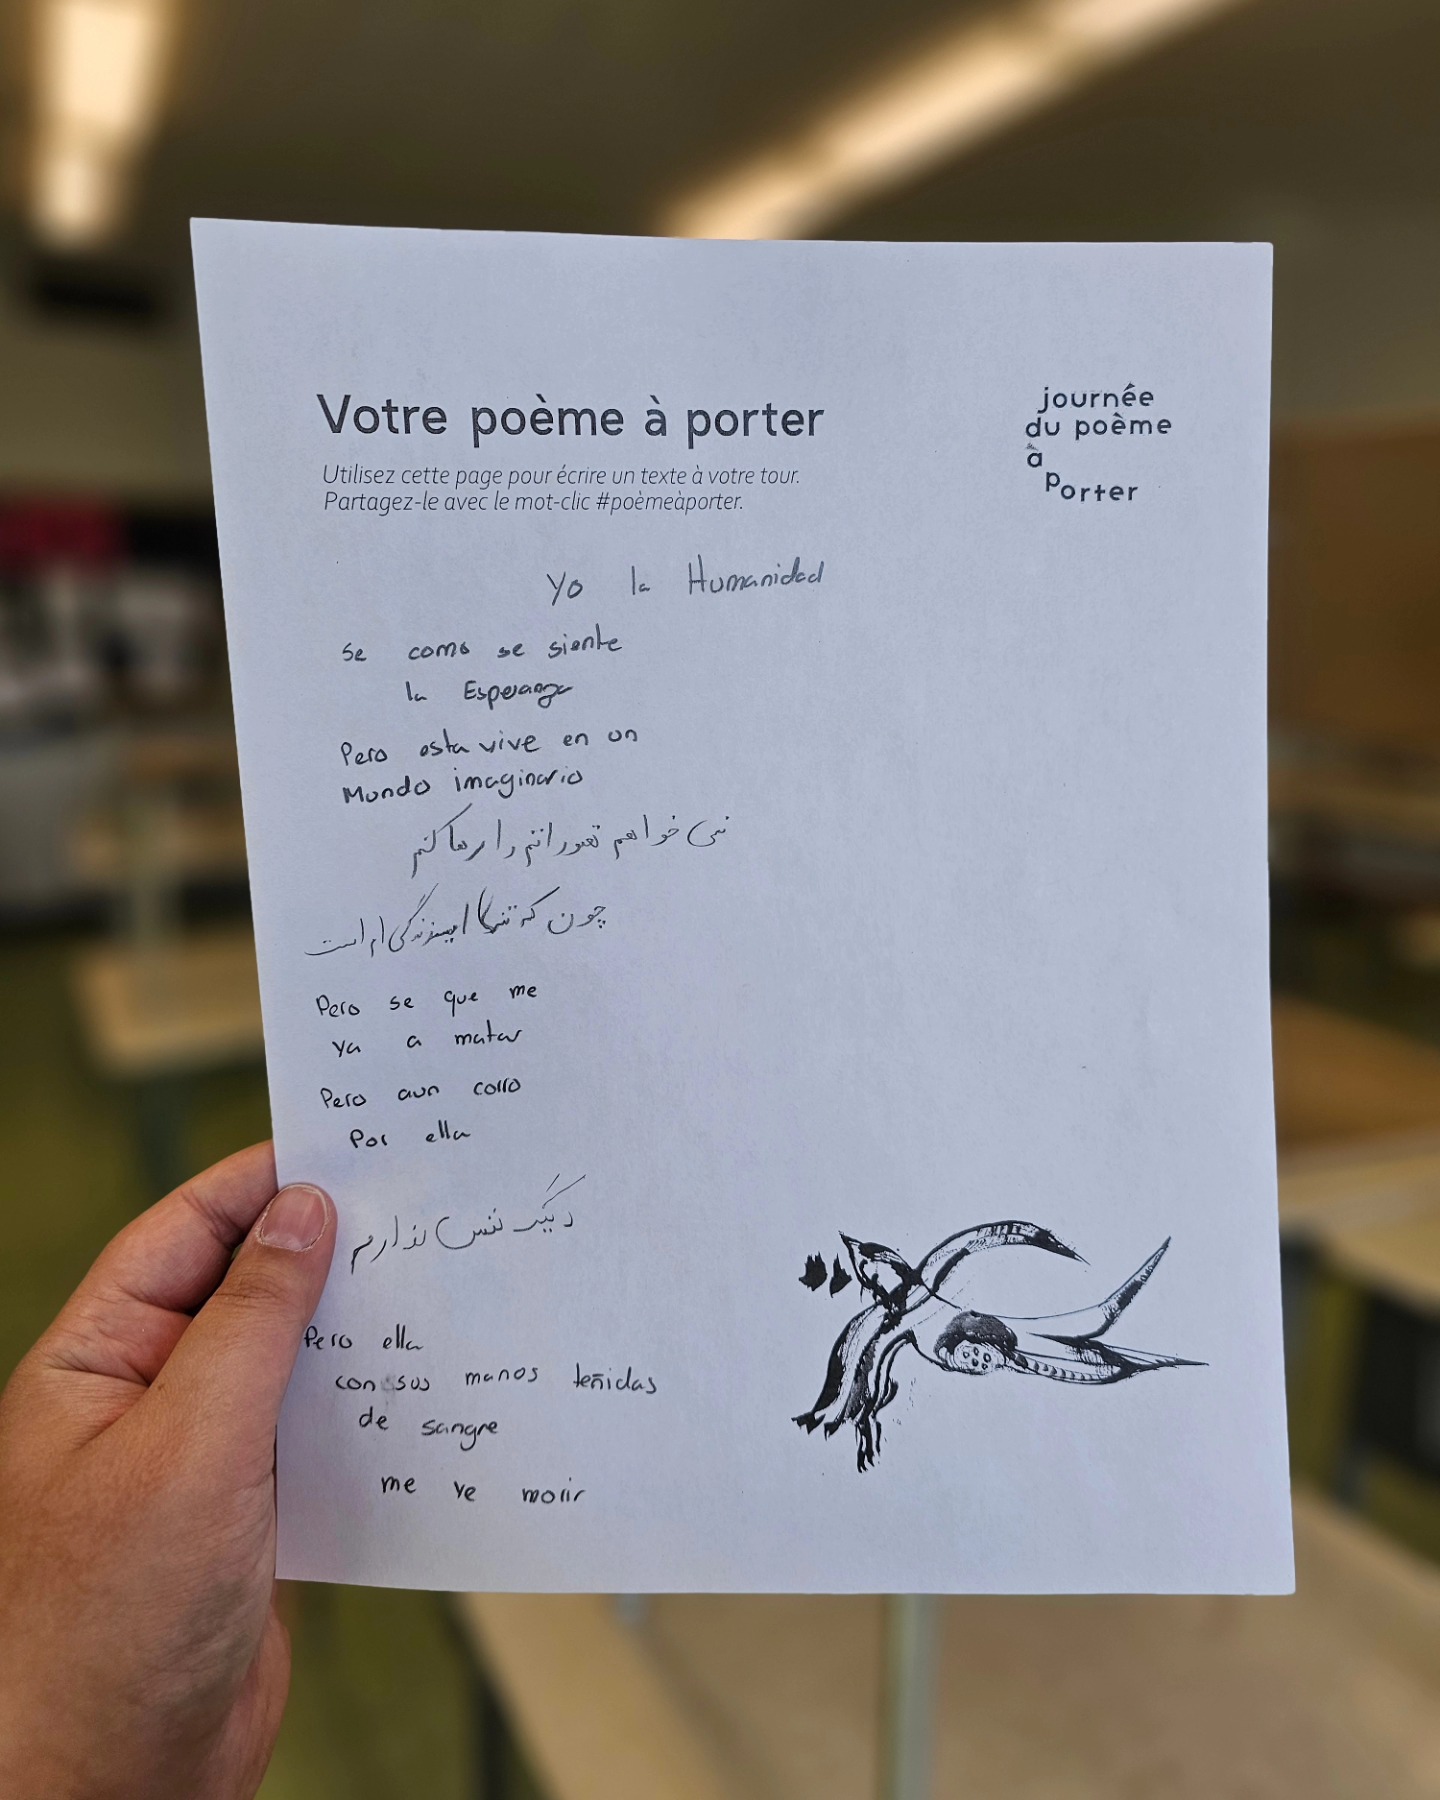 Votre poème à porter
Utilisez cette page pour écrire un texte à votre tour.
Partagez-le avec le mot-clic #poèmeàporter.
journée
du poème
à
porter
Yo la Humanidad
Se como se siente
la Esperanza
Pero esta vive en un
Mundo imaginario
نمی خواهم تصوراتم را رها کنم
چون که تنها امید زندگی ام است
Pero se que me
va a matar
Pero aun corro
Por ella
دیگر نفس ندارم
Pero ella
con sus manos teñidas
de sangre
me ve morir